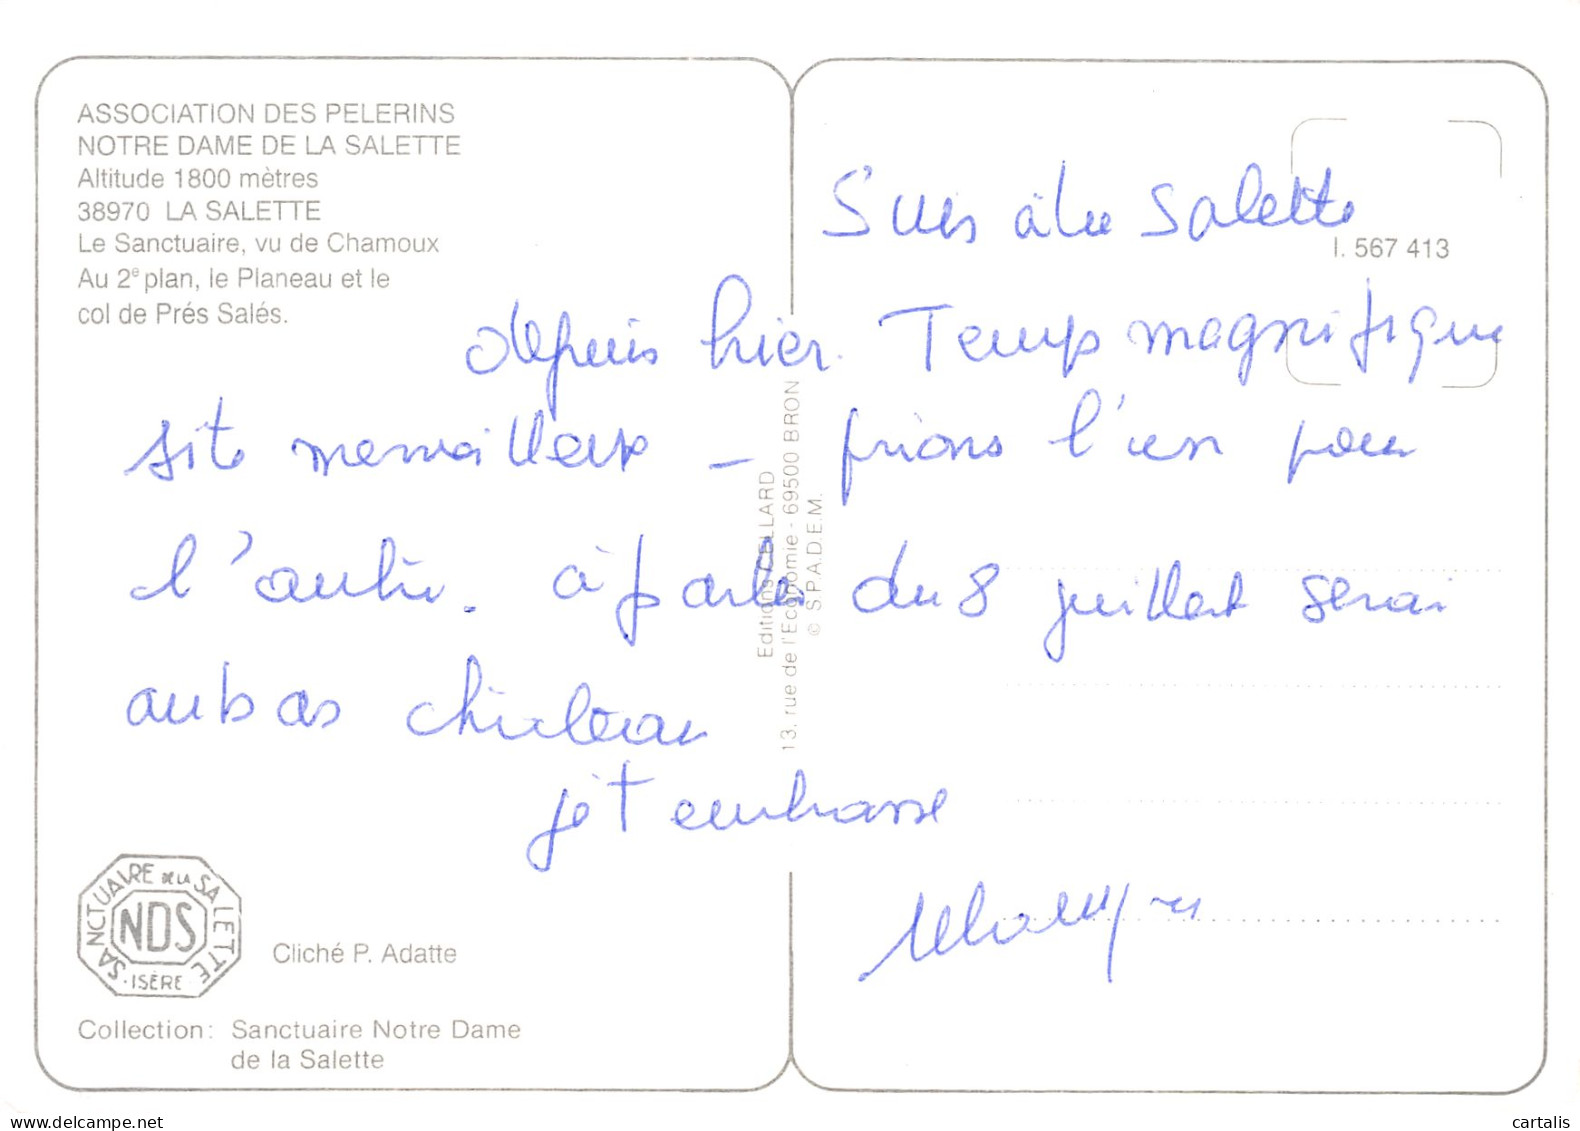 ASSOCIATION DES PELERINS
NOTRE DAME DE LA SALETTE
Altitude 1800 mètres
38970 LA SALETTE
Le Sanctuaire, vu de Chamoux
Au 2e plan, le Planeau et le
col de Prés Salés.
I. 567 413
Suis à la Salette
depuis hier. Temps magnifique
site merveilleux - prions l'un pour
l'autre. à partir du 8 juillet serai
au bas
je t embrasse
Editions CELLARD
13, rue de l'Economie - 69500 BRON
© S.P.A.D.E.M.
SANCTUAIRE DE LA SALETTE
NDS
·ISÈRE·
Cliché P. Adatte
Collection: Sanctuaire Notre Dame
de la Salette
delcampe.net
cartalis